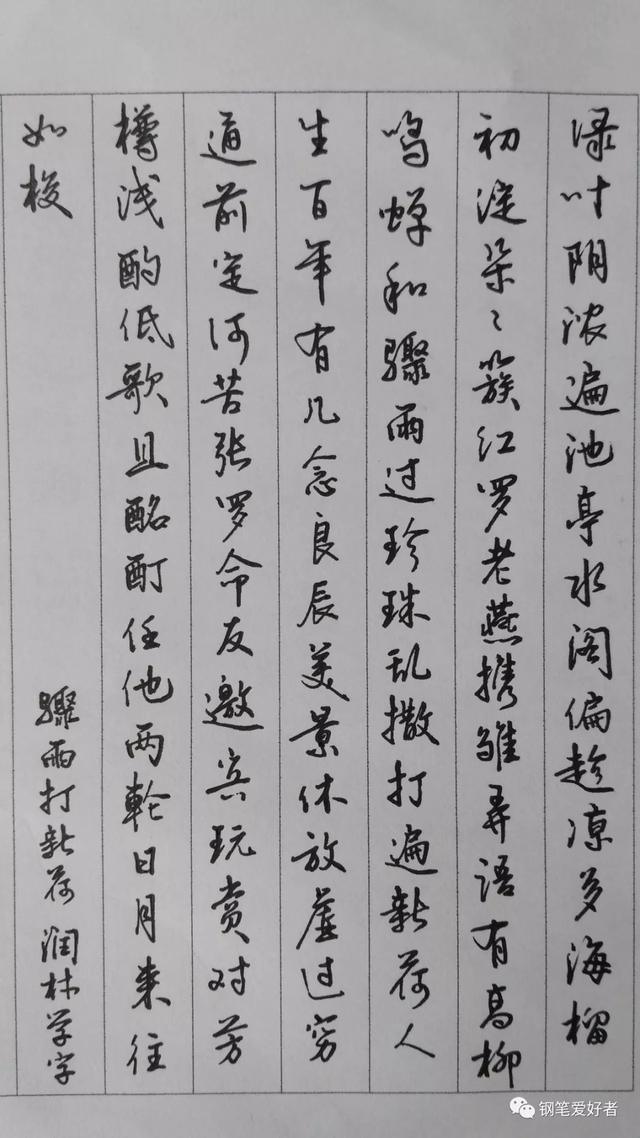 绿叶阴浓遍池亭水阁偏趁凉多海榴
初绽朵々簇红罗老燕携雏弄语有高柳
鸣蝉和骤雨过珍珠乱撒打遍新荷人
生百年有几念良辰美景休放虚过穷
通前定何苦张罗命友邀宾玩赏对芳
樽浅酌低歌且酩酊任他两轮日月来往
如梭
骤雨打新荷 润林学字
钢笔爱好者